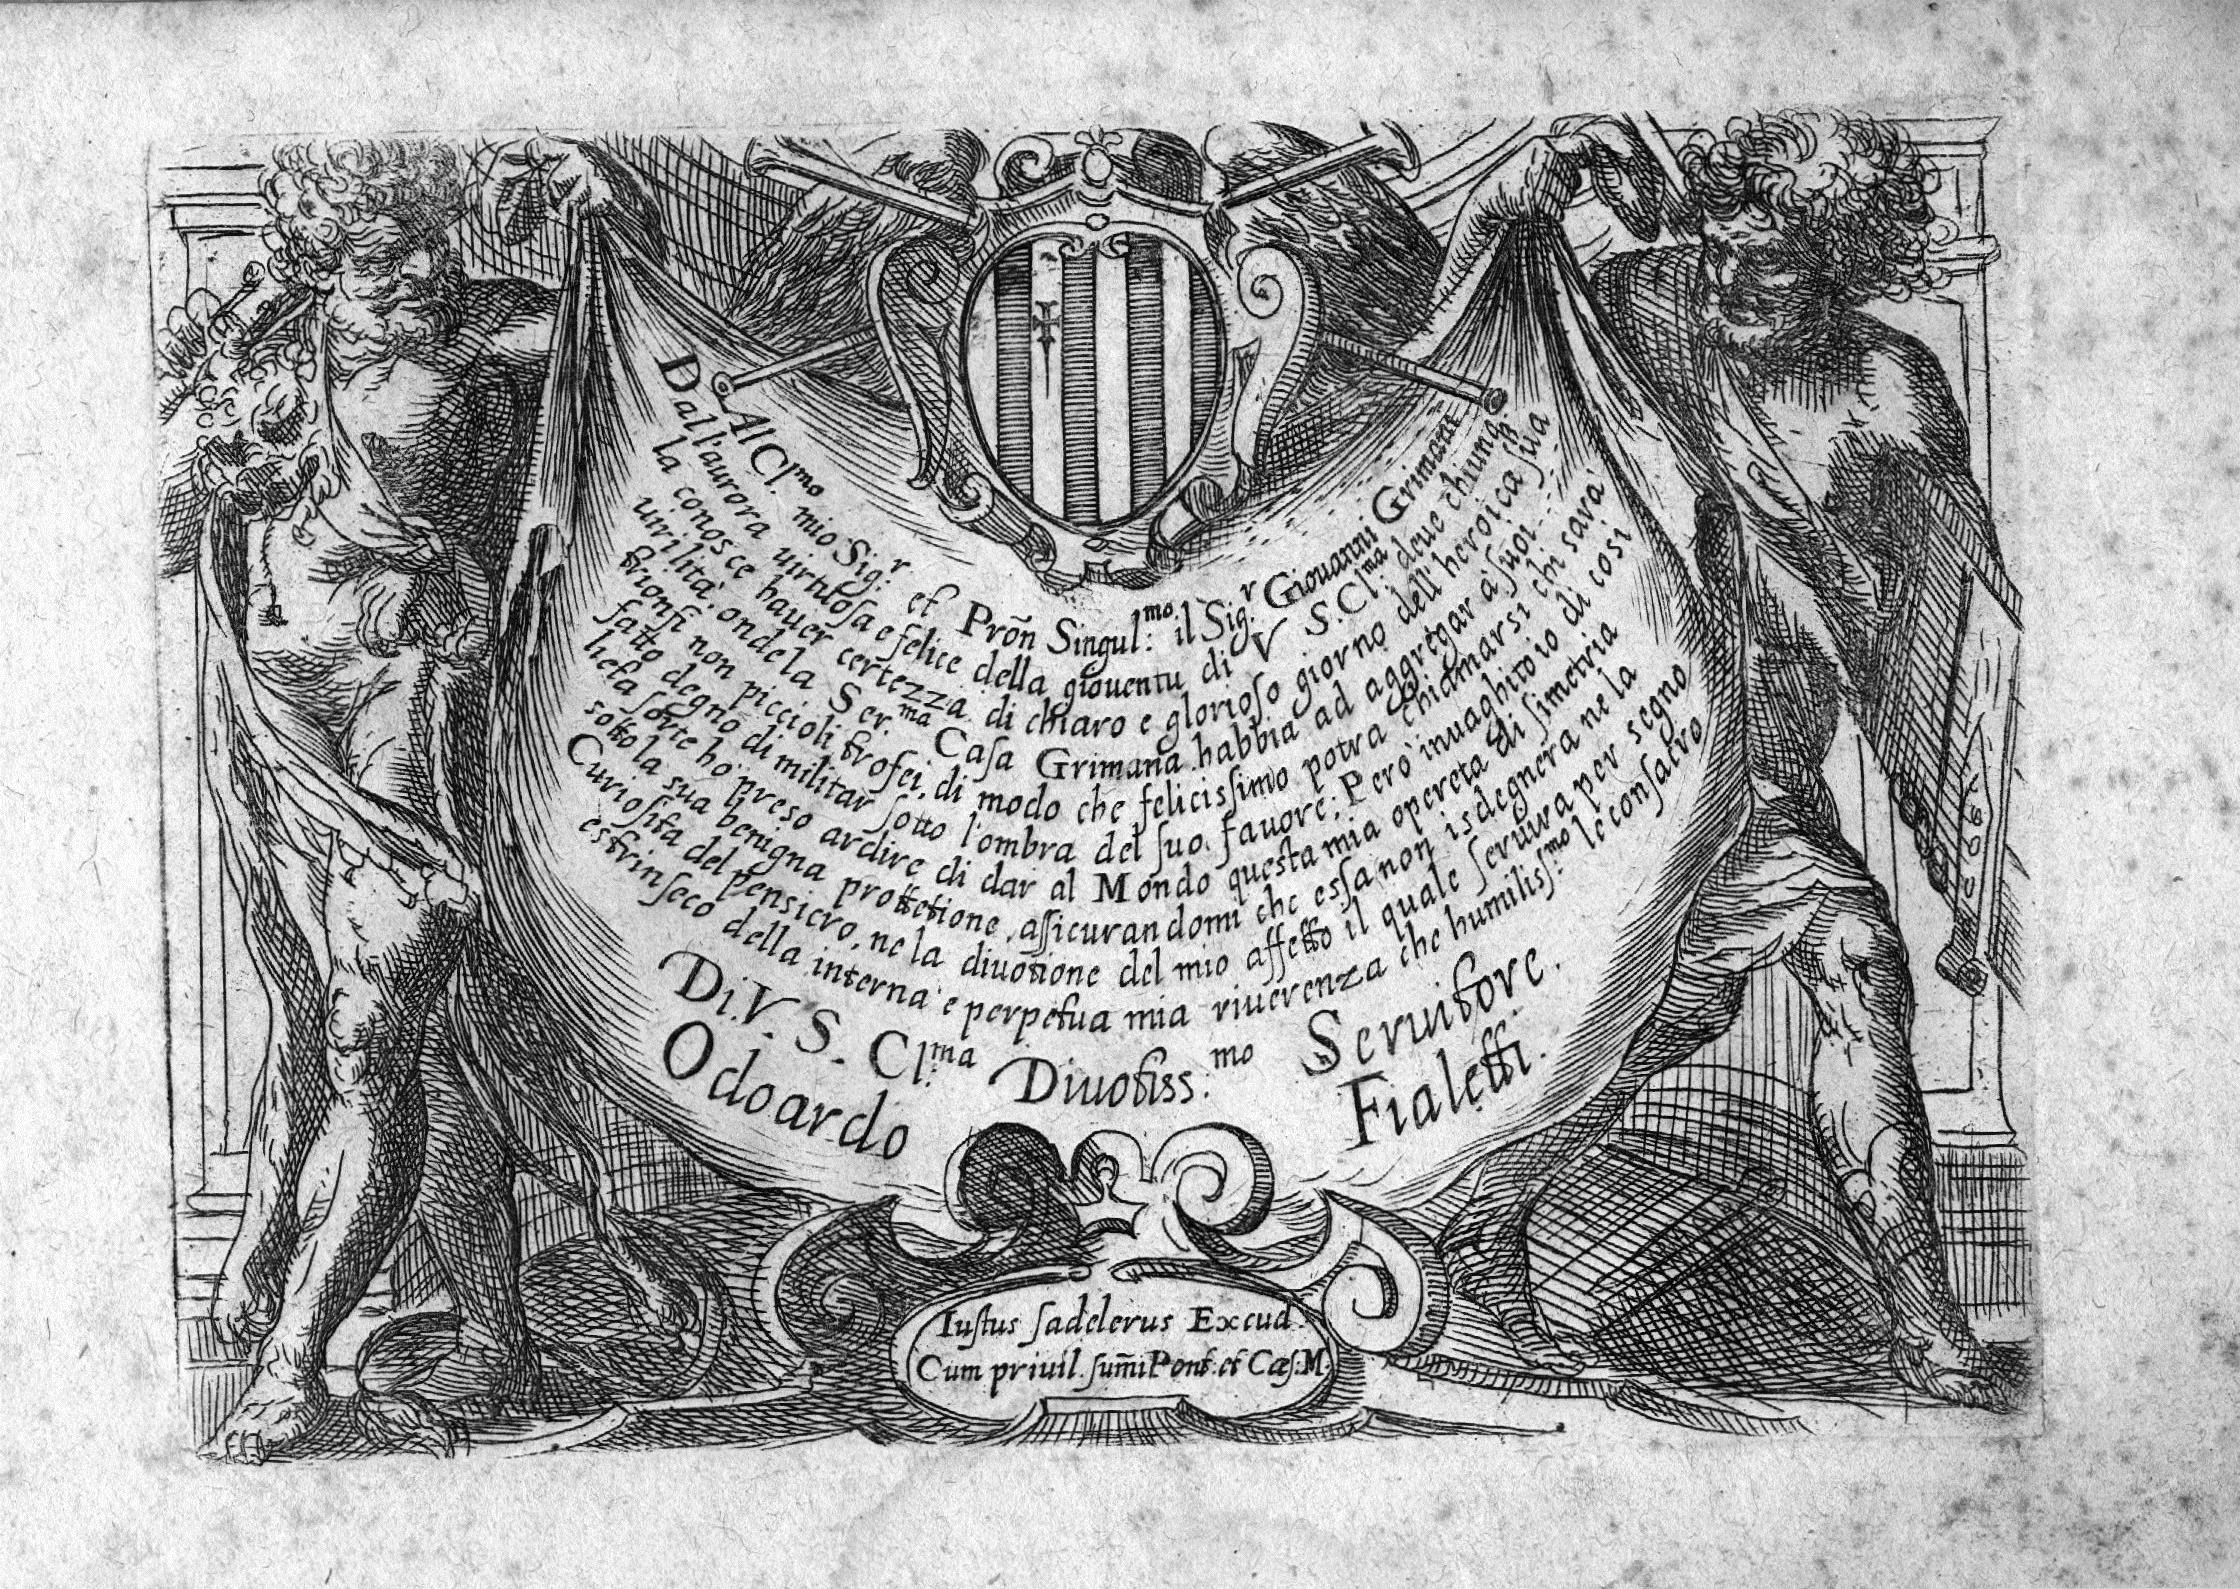 Al Cl.mo mio Sig.r et Prõn Singul.mo il Sig.r Giouanni Grimani
Dall'aurora uirtuosa e felice della giouentu di V. S. Cl.ma deue chiunq
la conosce hauer certezza di chiaro e glorioſo giorno dell'heroica ſua
uirilita. onde la Ser.ma Caſa Grimana habbia ad aggregar à ſuoi
trionfi non piccioli trofei, di modo che felicisſimo potra chiamarsi chi sarà
fatto degno di militar ſotto l'ombra del ſuo fauore; Però inuaghito io di cosi
lieta ſorte hò preso ardire di dar al Mondo questa mia opereta di ſimetria
sotto la sua benigna prottetione, aſſicurandomi che esſa non isdegnera ne la
Curioſita del pensiero, ne la diuotione del mio affetto il quale ſeruira per segno
estrinſeco della interna e perpetua mia riuerenza che humilisſ.mo le conſacro
Di V. S. Cl.ma Diuotiss.mo Seruitore.
Odoardo Fialetti.
Iuſtus ſadelerus Excud.
Cum priuil. ſum̃i Pont. et Cæſ. M.